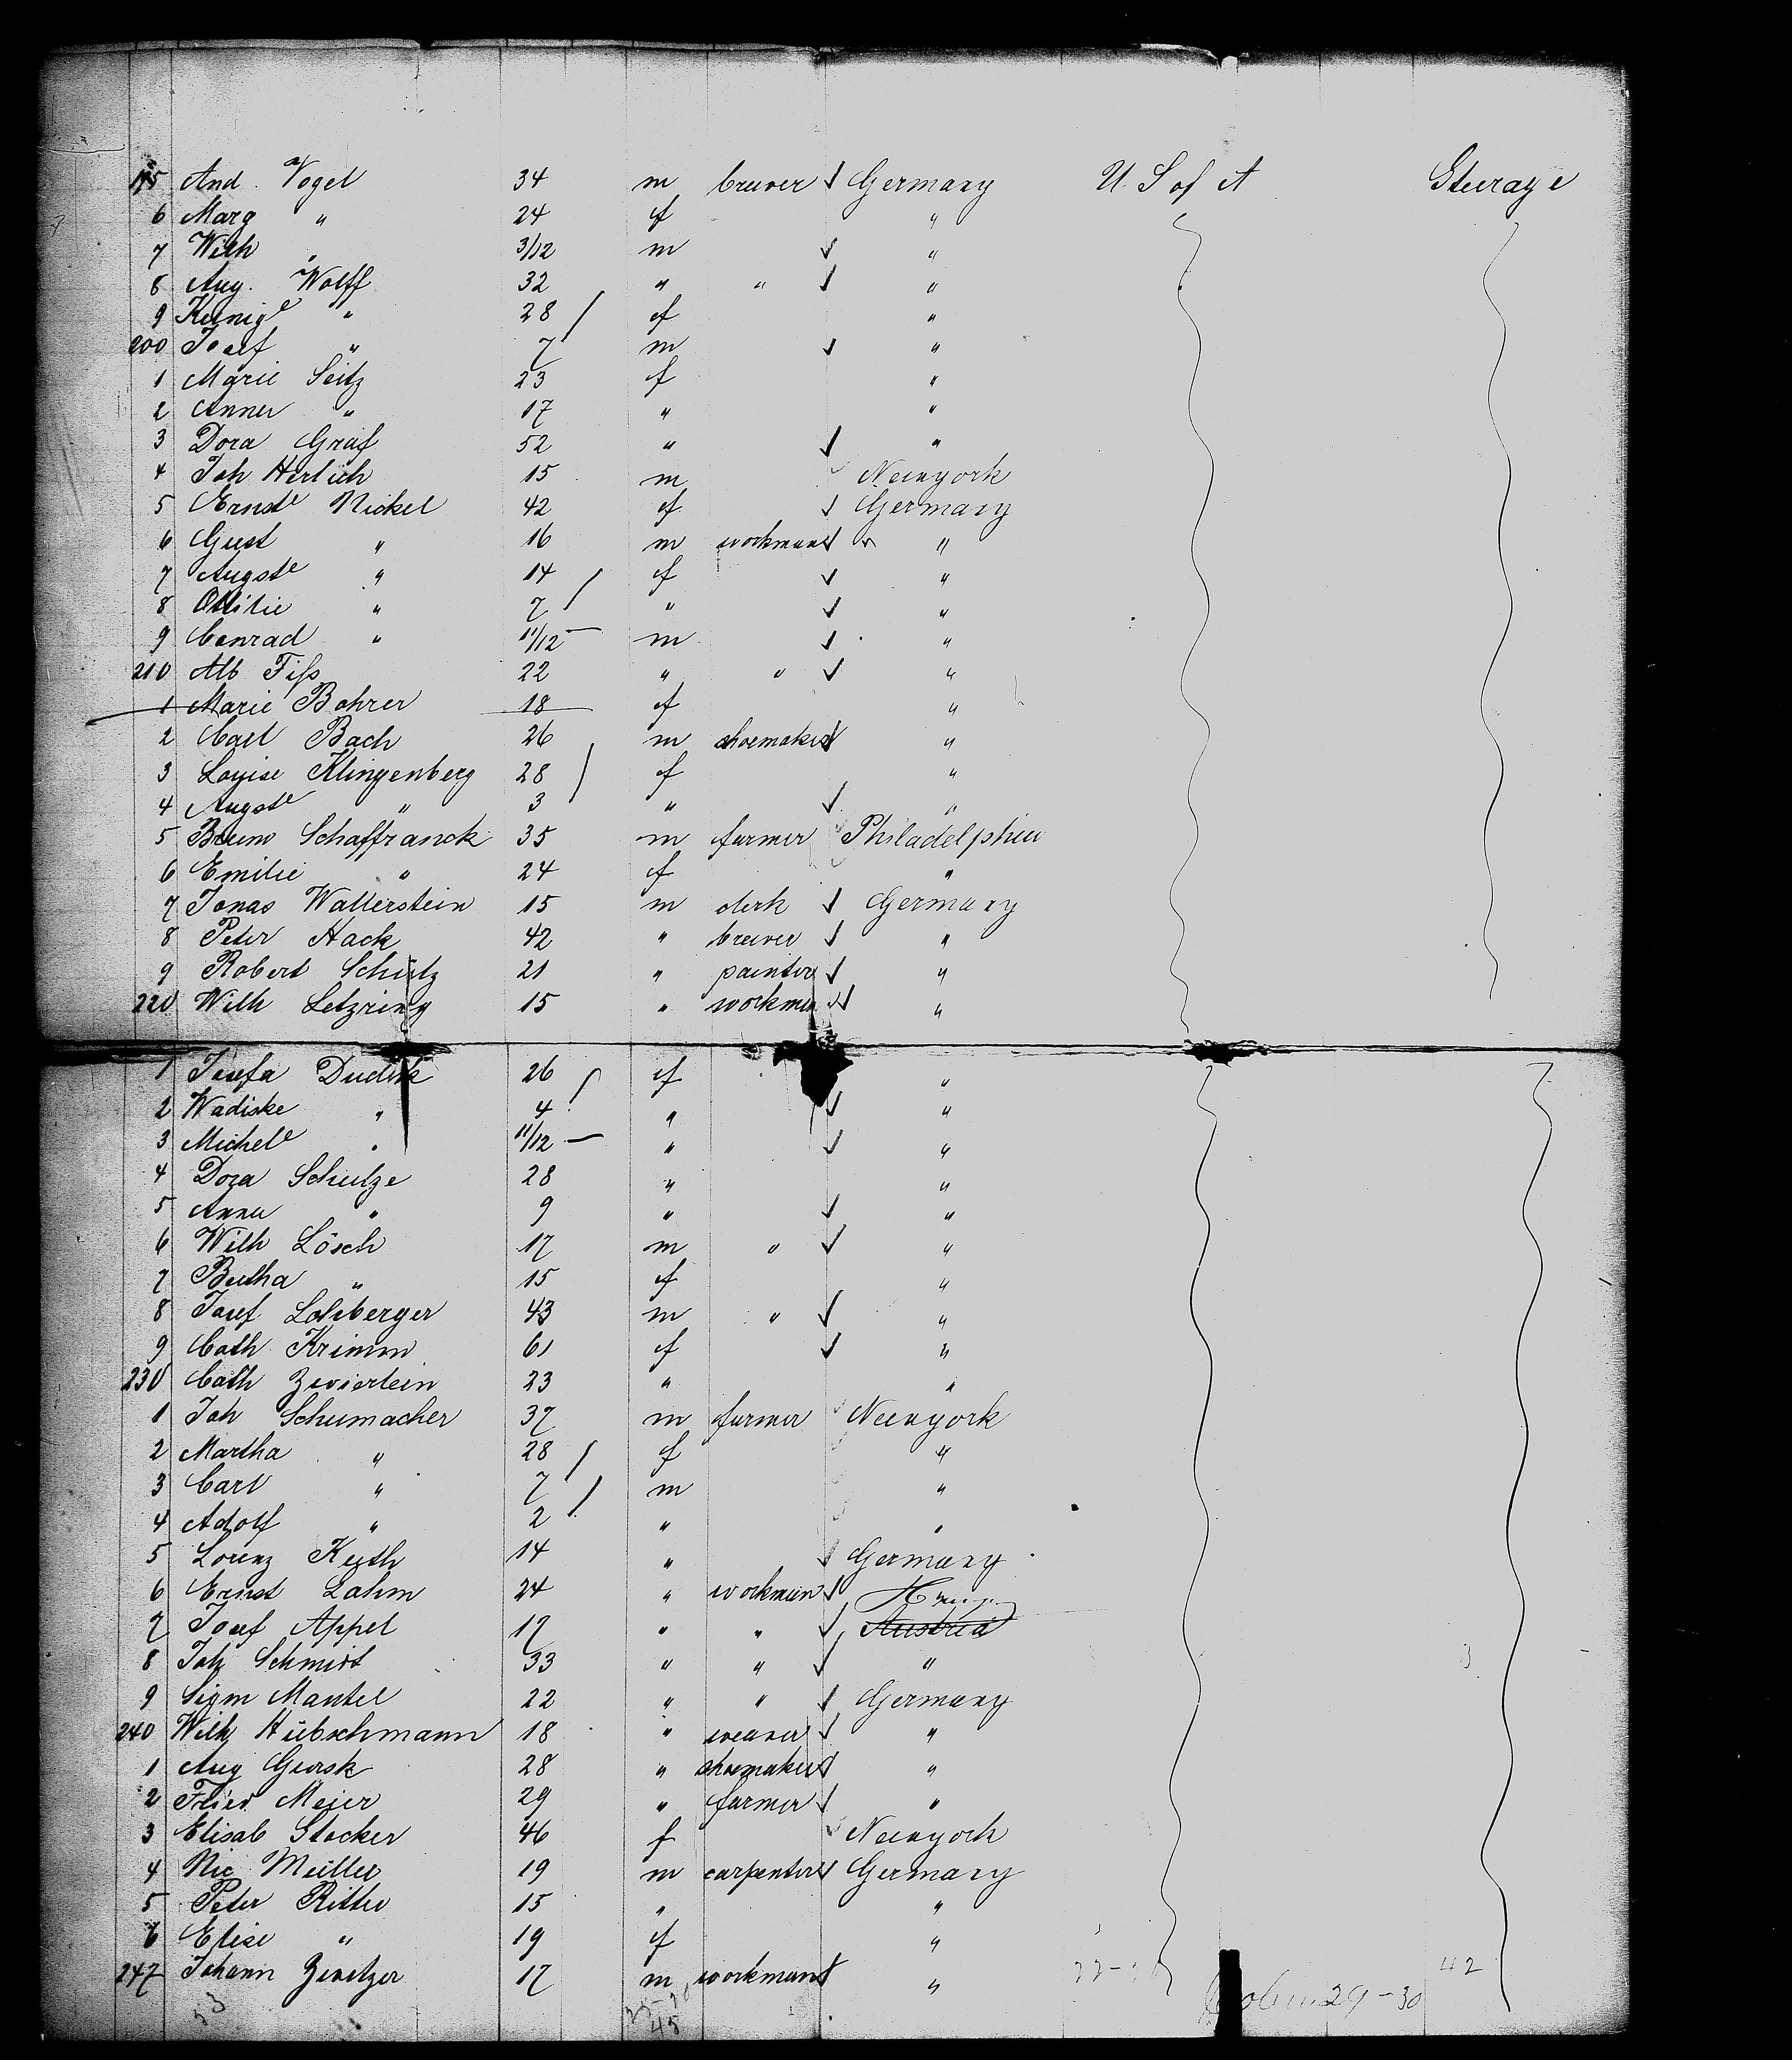 195 And. Vogel 34 m brewer Germany U. S of A Steerage
6 Marg " 24 f "
7 Wilh " 3/12 m "
8 Aug. Wolff 32 " " "
9 Kunige " 28 f "
200 Josef " 7 m "
1 Marie Seitz 23 f "
2 Anna " 17 " "
3 Dora Graf 52 " "
4 Joh Herlich 15 m Newyork
5 Ernste Nickel 42 f Germany
6 Gust " 16 m workman "
7 Auguste " 14 f "
8 Ottilie " 7 " "
9 Conrad " 11/12 m "
210 Alb Fiss 22 " " "
1 Marie Bohrer 18 f "
2 Carl Bach 26 m shoemaker "
3 Louise Klingenberg 28 f "
4 Augste " 3 " "
5 Bruno Schaffranck 35 m farmer Philadelphia
6 Emilie " 24 f "
7 Jonas Wallerstein 15 m clerk Germany
8 Peter Hack 42 " brewer "
9 Robert Schutz 21 " painter "
220 Wilh Letzring 15 " workman "
1 Josefa Dudek 26 f "
2 Wadiske " 4 " "
3 Michele " 11/12 " "
4 Dora Schulze 28 " "
5 Anna " 9 " "
6 Wilh Lösch 17 m " "
7 Bertha " 15 f "
8 Josef Lohberger 43 m " "
9 Cath Krimm 61 f "
230 Cath Zwierlein 23 " "
1 Joh Schumacher 37 m farmer Newyork
2 Martha " 28 f "
3 Carl " 7 m "
4 Adolf " 2 " "
5 Lorenz Keith 14 " Germany
6 Ernst Lahm 24 " workman
7 Josef Appel 17 " " Austria
8 Joh Schmidt 33 " " "
9 Sigm Mantel 22 " " Germany
240 Wilh Hübschmann 18 " weaver "
1 Aug Gorsk 28 " shoemaker "
2 Fried. Meier 29 " farmer "
3 Elisab Stocker 46 f Newyork
4 Nic Müller 19 m carpenter Germany
5 Peter Ritter 15 " "
6 Elise " 19 f "
247 Johann Zwetzer 17 m workman "
53 45 29-30 42